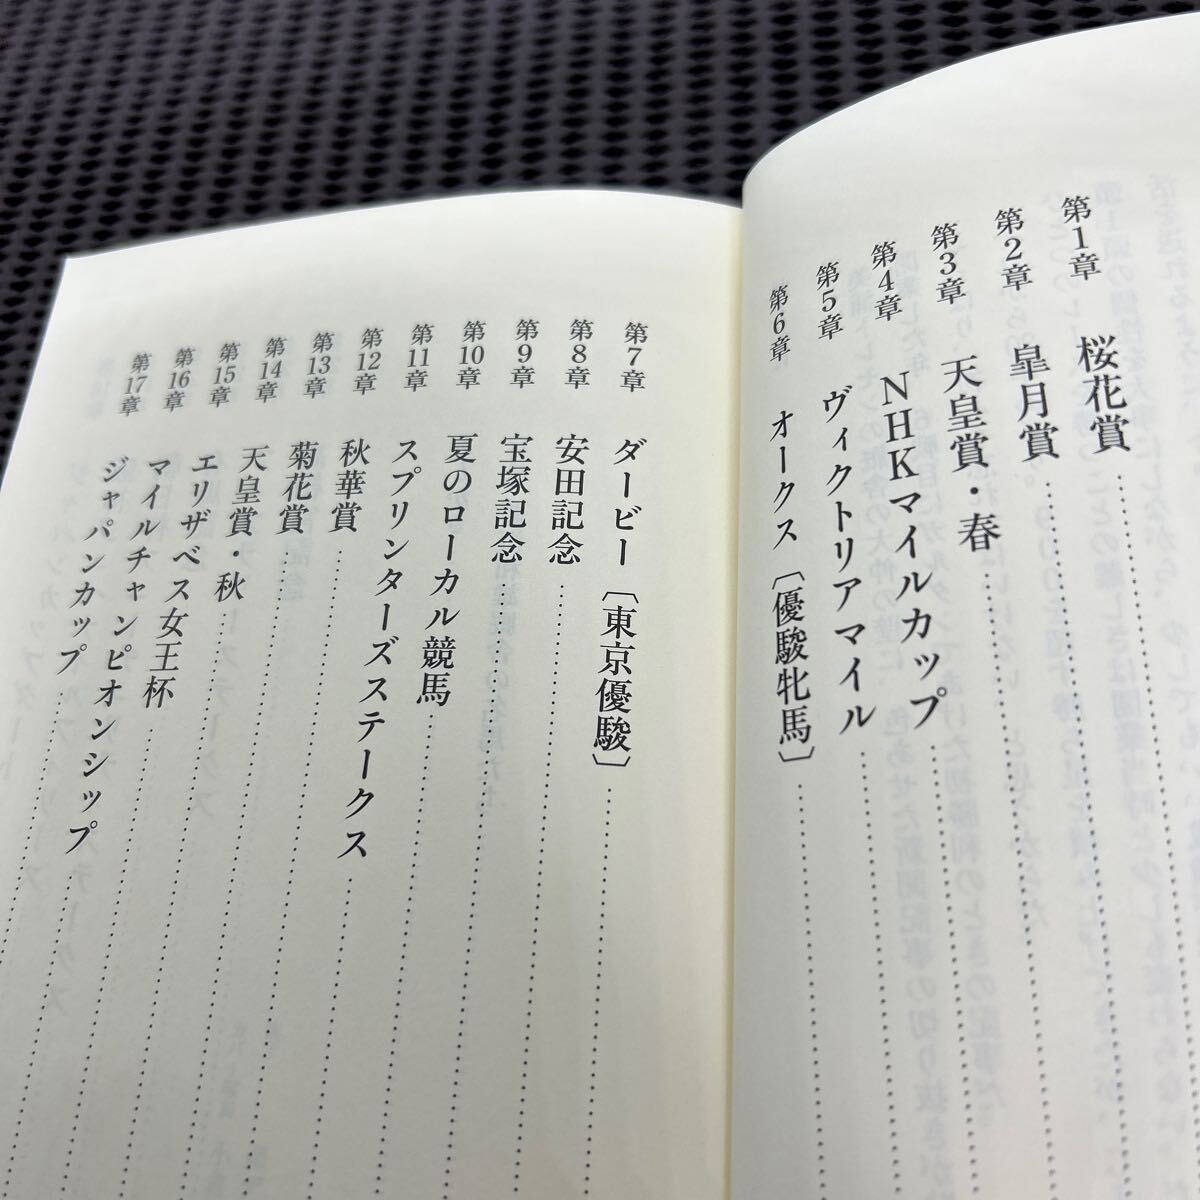 第1章 桜花賞
第2章 皐月賞
第3章 天皇賞・春
第4章 NHKマイルカップ
第5章 ヴィクトリアマイル
第6章 オークス〔優駿牝馬〕
第7章 ダービー〔東京優駿〕
第8章 安田記念
第9章 宝塚記念
第10章 夏のローカル競馬
第11章 スプリンターズステークス
第12章 秋華賞
第13章 菊花賞
第14章 天皇賞・秋
第15章 エリザベス女王杯
第16章 マイルチャンピオンシップ
第17章 ジャパンカップ